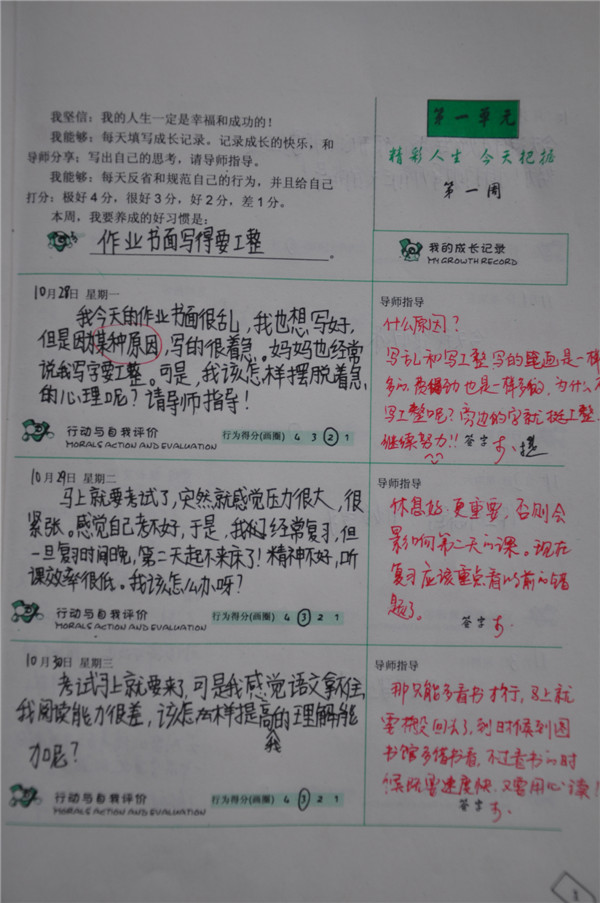 我坚信：我的人生一定是幸福和成功的！
我能够：每天填写成长记录。记录成长的快乐，和
导师分享；写出自己的思考，请导师指导。
我能够：每天反省和规范自己的行为，并且给自己
打分：极好4分，很好3分，好2分，差1分。
本周，我要养成的好习惯是：
作业书面写得要工整。
第一单元
精彩人生 今天把握
第一周
我的成长记录
MY GROWTH RECORD
10月28日 星期一
我今天的作业书面很乱，我也想写好，
但是因为某种原因，写的很着急。妈妈也经常
说我写字要工整。可是，我该怎样摆脱着急
的心理呢？请导师指导！
行动与自我评价 行为得分(画圈) 4 3 2 1
MORALS ACTION AND EVALUATION
导师指导
什么原因？
写乱和写工整写的笔画是一样
多的 也是一样多的，为什么不
写工整呢？旁边的字就挺工整
继续努力!! 签字
10月29日 星期二
马上就要考试了，突然就感觉压力很大，很
紧张。感觉自己考不好，于是，我经常复习，但
一旦复习时间晚，第二天起不来床了！精神不好，听
课效率很低。我该怎么办呀？
行动与自我评价 行为得分(画圈) 4 3 2 1
MORALS ACTION AND EVALUATION
导师指导
休息好更重要，否则会
影响第二天的课。现在
复习应该重点看以前的错
题了。
签字
10月30日 星期三
考试马上就要来了，可是我感觉语文拿不住，
我阅读能力很差，该怎么样提高我的理解能
力呢？
行动与自我评价 行为得分(画圈) 4 3 2 1
MORALS ACTION AND EVALUATION
导师指导
那只能多看书才行，马上就
要搬回去了，到时候到图
书馆多借书看，不过看书的时
候既要速度快，又要用心读！
签字
1